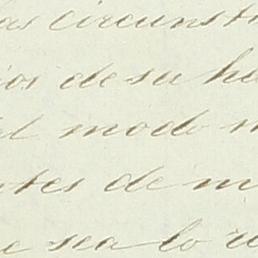 las circunst
ios de su h
l modo m
ntes de m
e sea lo re